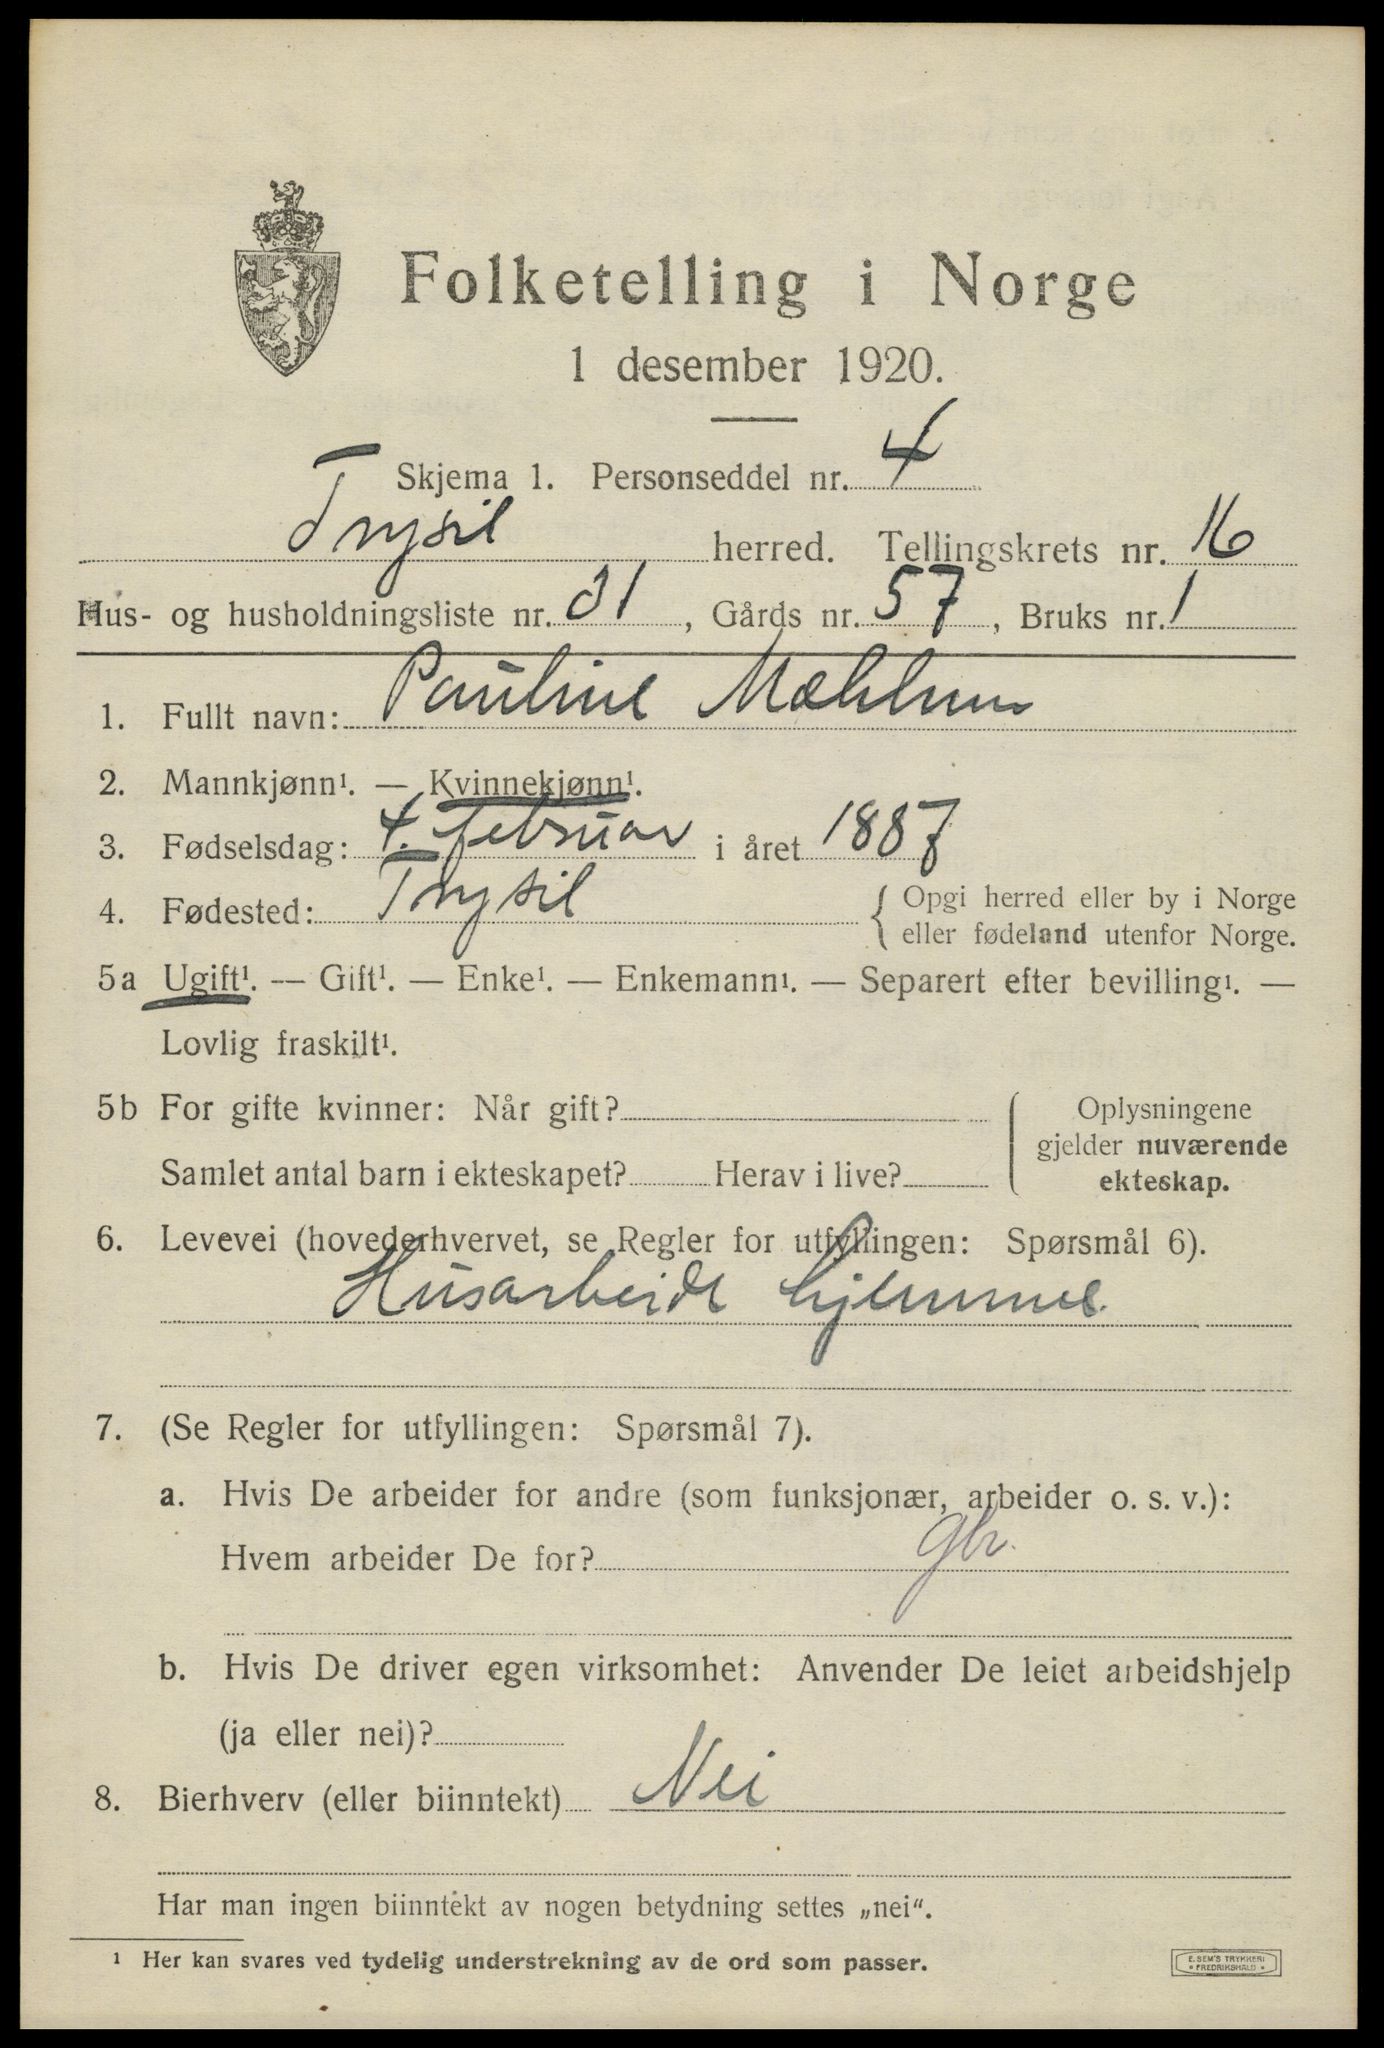 Folketelling i Norge
1 desember 1920.
Skjema 1. Personseddel nr. 4
Trysil herred. Tellingskrets nr. 16
Hus- og husholdningsliste nr. 31, Gårds nr. 57, Bruks nr. 1
1. Fullt navn: Pauline Mæhlum
2. Mannkjønn¹. — Kvinnekjønn¹.
3. Fødselsdag: 4. februar i året 1887
4. Fødested: Trysil { Opgi herred eller by i Norge
eller fødeland utenfor Norge.
5a Ugift¹. — Gift¹. — Enke¹. — Enkemann¹. — Separert efter bevilling¹. —
Lovlig fraskilt¹.
5b For gifte kvinner: Når gift? Oplysningene
gjelder nuværende
Samlet antal barn i ekteskapet? Herav i live? ekteskap.
6. Levevei (hovederhvervet, se Regler for utfyllingen: Spørsmål 6).
Husarbeide hjemme
7. (Se Regler for utfyllingen: Spørsmål 7).
a. Hvis De arbeider for andre (som funksjonær, arbeider o. s. v.):
Hvem arbeider De for? Gbr.
b. Hvis De driver egen virksomhet: Anvender De leiet arbeidshjelp
(ja eller nei)?
8. Bierhverv (eller biinntekt) Nei
Har man ingen biinntekt av nogen betydning settes „nei“.
¹ Her kan svares ved tydelig understrekning av de ord som passer.
E. SEM'S TRYKKERI
• FREDRIKSHALD •